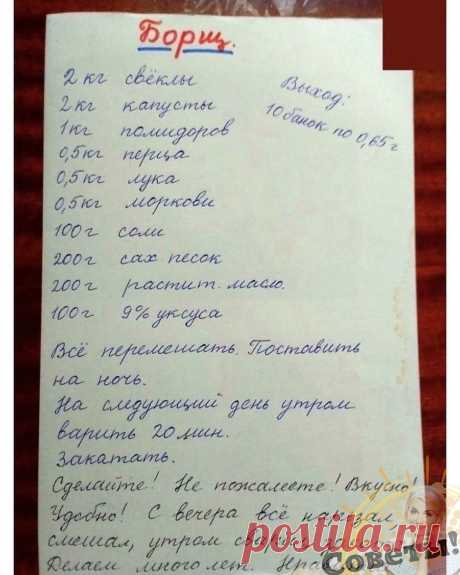 Борщ.
2 кг свёклы
2 кг капусты
1 кг помидоров
0,5 кг перца
0,5 кг лука
0,5 кг моркови
100 г соли
200 г сах. песок
200 г растит. масло.
100 г 9% уксуса
Выход:
10 банок по 0,65 г
Всё перемешать. Поставить
на ночь.
На следующий день утром
варить 20 мин.
Закатать.
Сделайте! Не пожалеете! Вкусно!
Удобно! С вечера всё нарезал
смешал, утром
Делаем много лет.
postila.ru
Советы!